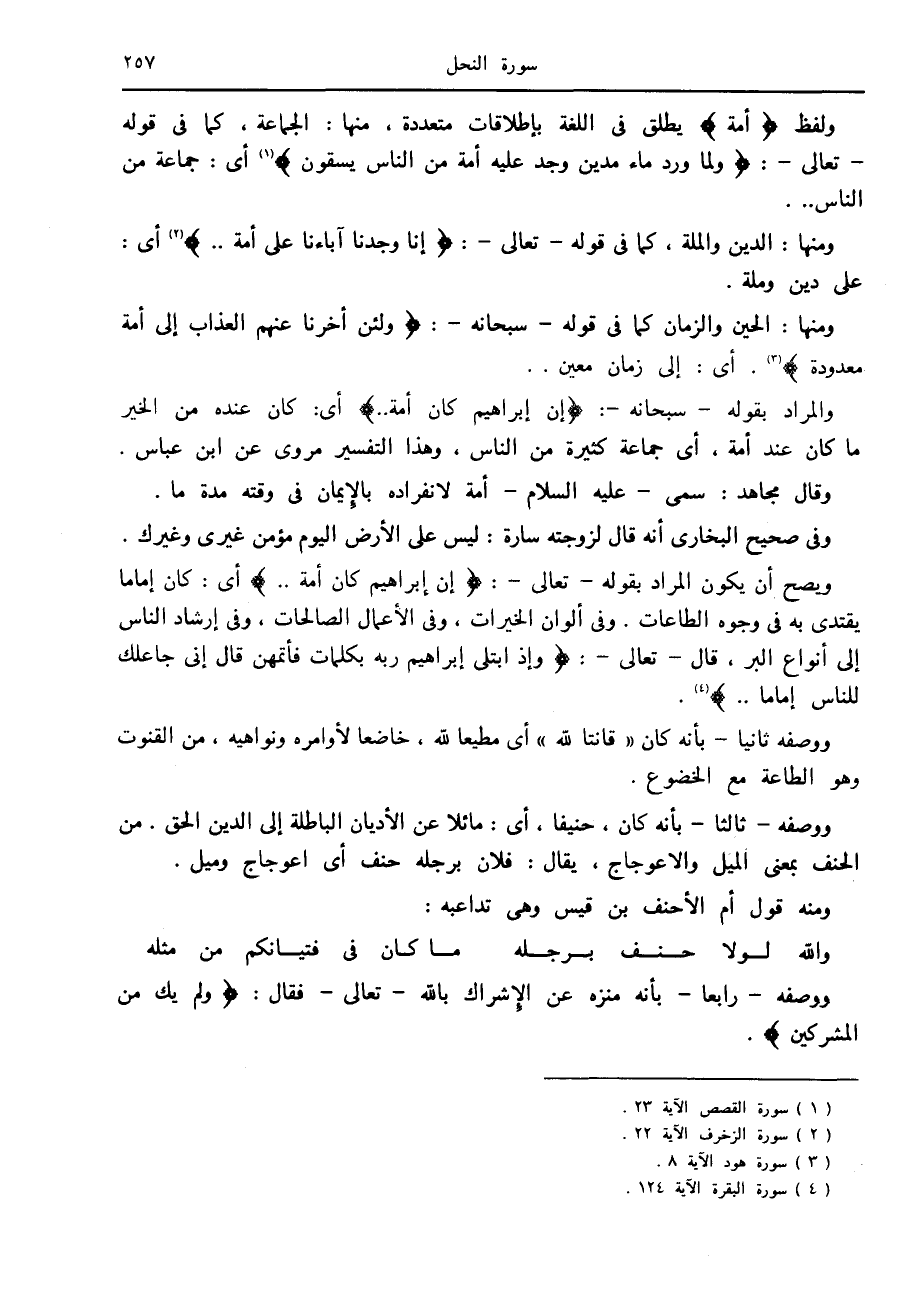 سورة النحل ٢٥٧
ولفظ ﴿ أمة ﴾ يطلق فى اللغة بإطلاقات متعددة ، منها : الجماعة ، كما فى قوله
– تعالى – : ﴿ ولما ورد ماء مدين وجد عليه أمة من الناس يسقون ﴾(١) أى : جماعة من
الناس.. .
ومنها : الدين والملة ، كما فى قوله – تعالى – : ﴿ إنا وجدنا آباءنا على أمة .. ﴾(٢) أى :
على دين وملة .
ومنها : الحين والزمان كما فى قوله – سبحانه – : ﴿ ولئن أخرنا عنهم العذاب إلى أمة
معدودة ﴾(٣) . أى : إلى زمان معين . .
والمراد بقوله – سبحانه –: ﴿إن إبراهيم كان أمة..﴾ أى: كان عنده من الخير
ما كان عند أمة ، أى جماعة كثيرة من الناس ، وهذا التفسير مروى عن ابن عباس .
وقال مجاهد : سمى – عليه السلام – أمة لانفراده بالإيمان فى وقته مدة ما .
وفى صحيح البخارى أنه قال لزوجته سارة : ليس على الأرض اليوم مؤمن غيرى وغيرك .
ويصح أن يكون المراد بقوله – تعالى – : ﴿ إن إبراهيم كان أمة .. ﴾ أى : كان إماما
يقتدى به فى وجوه الطاعات . وفى ألوان الخيرات ، وفى الأعمال الصالحات ، وفى إرشاد الناس
إلى أنواع البر ، قال – تعالى – : ﴿ وإذ ابتلى إبراهيم ربه بكلمات فأتمهن قال إنى جاعلك
للناس إماما .. ﴾(٤) .
ووصفه ثانيا – بأنه كان « قانتا لله » أى مطيعا لله ، خاضعا لأوامره ونواهيه ، من القنوت
وهو الطاعة مع الخضوع .
ووصفه – ثالثا – بأنه كان ، حنيفا ، أى : مائلا عن الأديان الباطلة إلى الدين الحق . من
الحنف بمعنى الميل والاعوجاج ، يقال : فلان برجله حنف أى اعوجاج وميل .
ومنه قول أم الأحنف بن قيس وهى تداعبه :
والله لــولا حـنــف بــرجــله مــا كــان فى فتيــانكم من مثله
ووصفه – رابعا – بأنه منزه عن الإشراك بالله – تعالى – فقال : ﴿ ولم يك من
المشركين ﴾ .
( ١ ) سورة القصص الآية ٢٣ .
( ٢ ) سورة الزخرف الآية ٢٢ .
( ٣ ) سورة هود الآية ٨ .
( ٤ ) سورة البقرة الآية ١٢٤ .